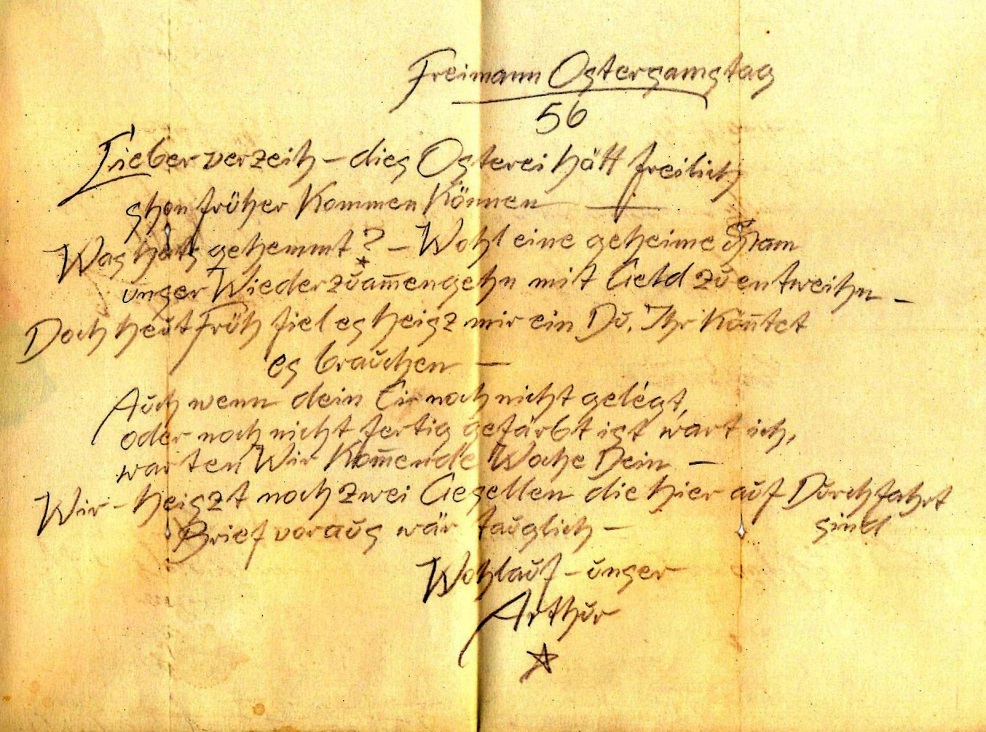 Freimann Ostersamstag
56
Lieber verzeih – dies Osterei hätt freilich
shon früher Kommen Können —
Was hats gehemmt? – Wohl eine geheime Sham
unser Wiederzuam̄engehn mit Geld zu entweihn –
Doch heut früh fiel es heisz mir ein Du. Ihr Kön̄tet
es brauchen —
Auch wenn dein Ei noch nicht gelegt,
oder noch nicht fertig gefärbt ist, wart ich,
warten Wir Kom̄ende Woche Dein —
Wir – heiszt noch zwei Gesellen die hier auf Durchfahrt
sind
Brief voraus wär tauglich –
Wohlauf – unser
Arthur